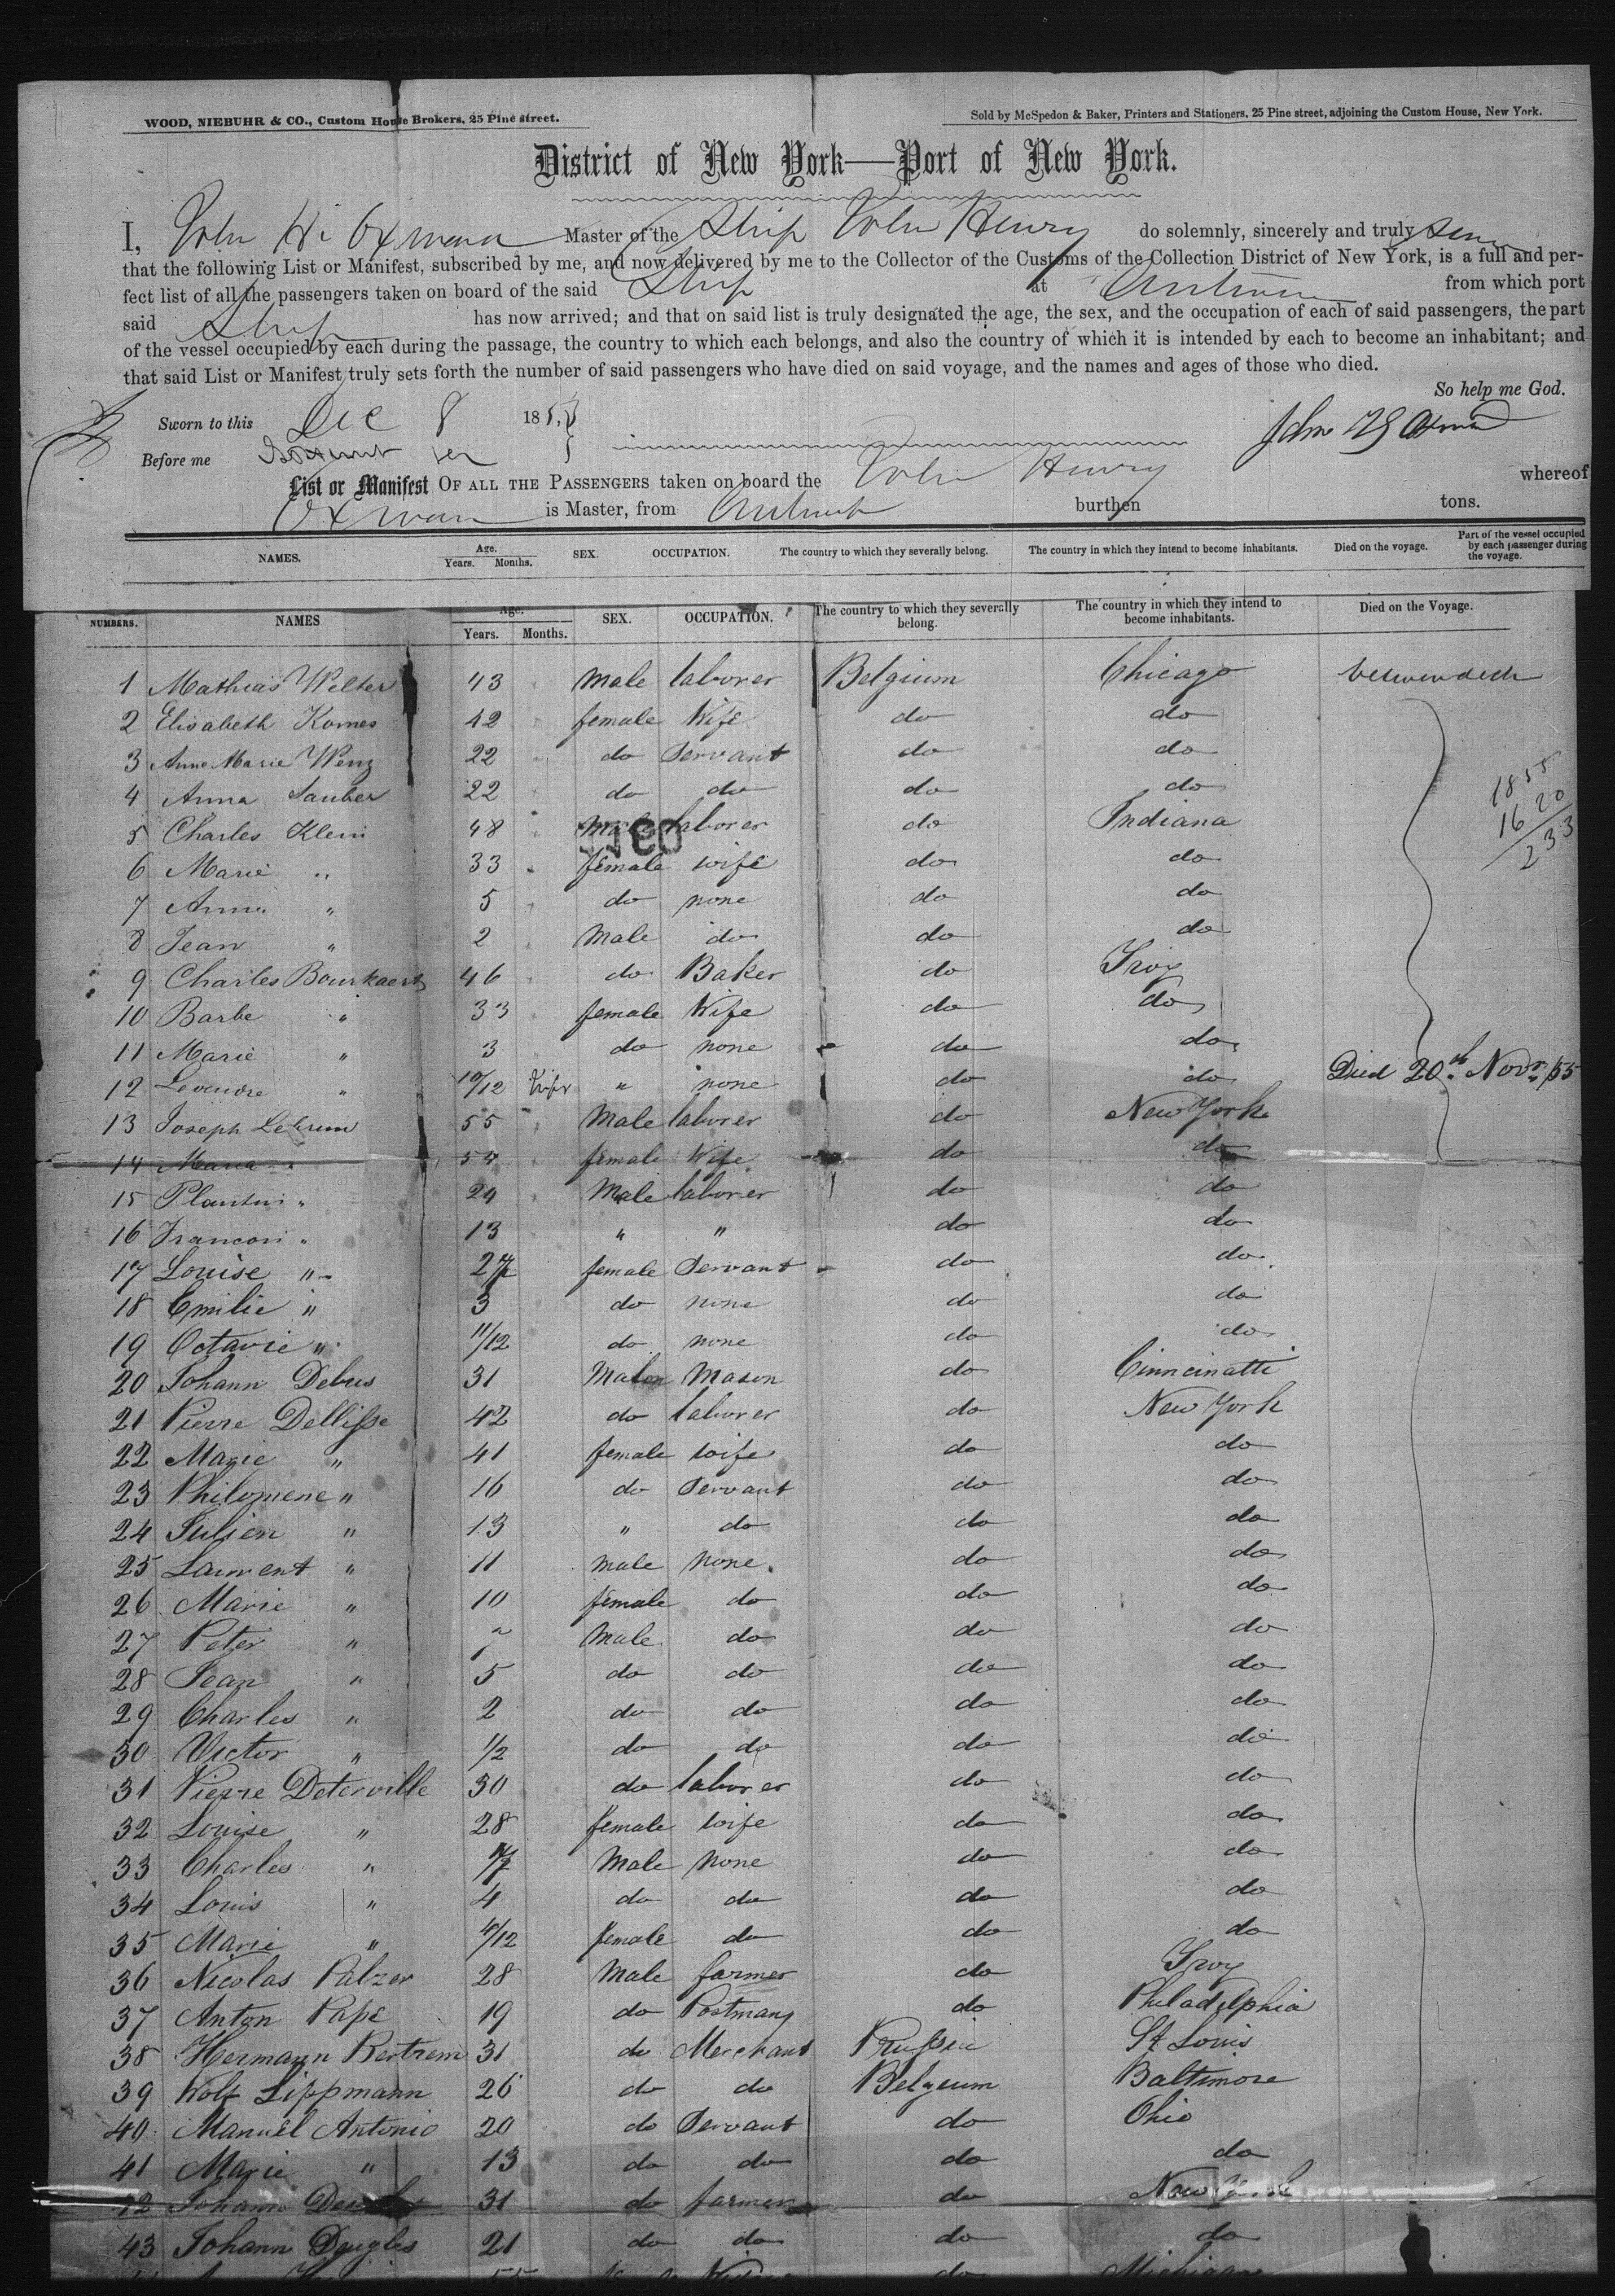 WOOD, NIEBUHR & CO., Custom House Brokers, 25 Pine street.
Sold by McSpedon & Baker, Printers and Stationers, 25 Pine street, adjoining the Custom House, New York.
District of New York—Port of New York.
I, John H. Oxman Master of the Ship John Henry do solemnly, sincerely and truly
that the following List or Manifest, subscribed by me, and now delivered by me to the Collector of the Customs of the Collection District of New York, is a full and per-
fect list of all the passengers taken on board of the said Ship at from which port
said Ship has now arrived; and that on said list is truly designated the age, the sex, and the occupation of each of said passengers, the part
of the vessel occupied by each during the passage, the country to which each belongs, and also the country of which it is intended by each to become an inhabitant; and
that said List or Manifest truly sets forth the number of said passengers who have died on said voyage, and the names and ages of those who died.
So help me God.
Sworn to this Dec 8 185
Before me
List or Manifest OF ALL THE PASSENGERS taken on board the John Henry whereof
Oxman is Master, from burthen tons.
NAMES. Age. Years. Months. SEX. OCCUPATION. The country to which they severally belong. The country in which they intend to become inhabitants. Died on the voyage. Part of the vessel occupied by each passenger during the voyage.
NUMBERS. NAMES Age. Years. Months. SEX. OCCUPATION. The country to which they severally belong. The country in which they intend to become inhabitants. Died on the Voyage.
1 Mathias Welter 43 Male laborer Belgium Chicago
2 Elisabeth Komes 42 female Wife do do
3 Anna Marie Wenz 22 do Servant do do
4 Anna Sauber 22 do do do do
5 Charles Klein 48 Male laborer do Indiana
6 Marie " 33 female wife do do
7 Anna " 5 do none do do
8 Jean " 2 Male do do do
9 Charles Bourkaerts 46 do Baker do Troy
10 Barbe " 33 female Wife do do
11 Marie " 3 do none do do
12 " 10/12 " none do do Died 20th Novr /55
13 Joseph Lebrun 55 Male laborer do New York
14 Maria " 54 female Wife do do
15 " 24 Male laborer do do
16 " 13 " " do do
17 Louise " female Servant do do
18 Emilie " 3 do none do do
19 Octavie " 11/12 do none do do
20 Johann Debus 31 Male Mason do Cinncinatti
21 Pierre Dellisse 42 do laborer do New York
22 Marie " 41 female wife do do
23 Philomene " 16 do Servant do do
24 Julien " 13 " do do do
25 Laurent " 11 male none. do do
26 Marie " 10 female do do do
27 Peter " 7 Male do do do
28 Jean " 5 do do do do
29 Charles " 2 do do do do
30 Victor " 1/2 do do do do
31 Pierre Deterville 30 do laborer do do
32 Louise " 28 female wife do do
33 Charles " Male none do do
34 Louis " 4 do do do do
35 Marie " female do do do
36 Nicolas Palzer 28 Male farmer do Troy
37 Anton Pape 19 do do Philadelphia
38 Hermann Bertrem 31 do Merchant Prussia St Louis
39 Wolf Lippmann 26 do do Belgeum Baltimore
40 Manuel Antonio 20 do Servant do Ohio
41 Marie " 13 do do do do
42 Johann 31 do farmer do New York
43 Johann Dengles 21 do do do do
Michigan